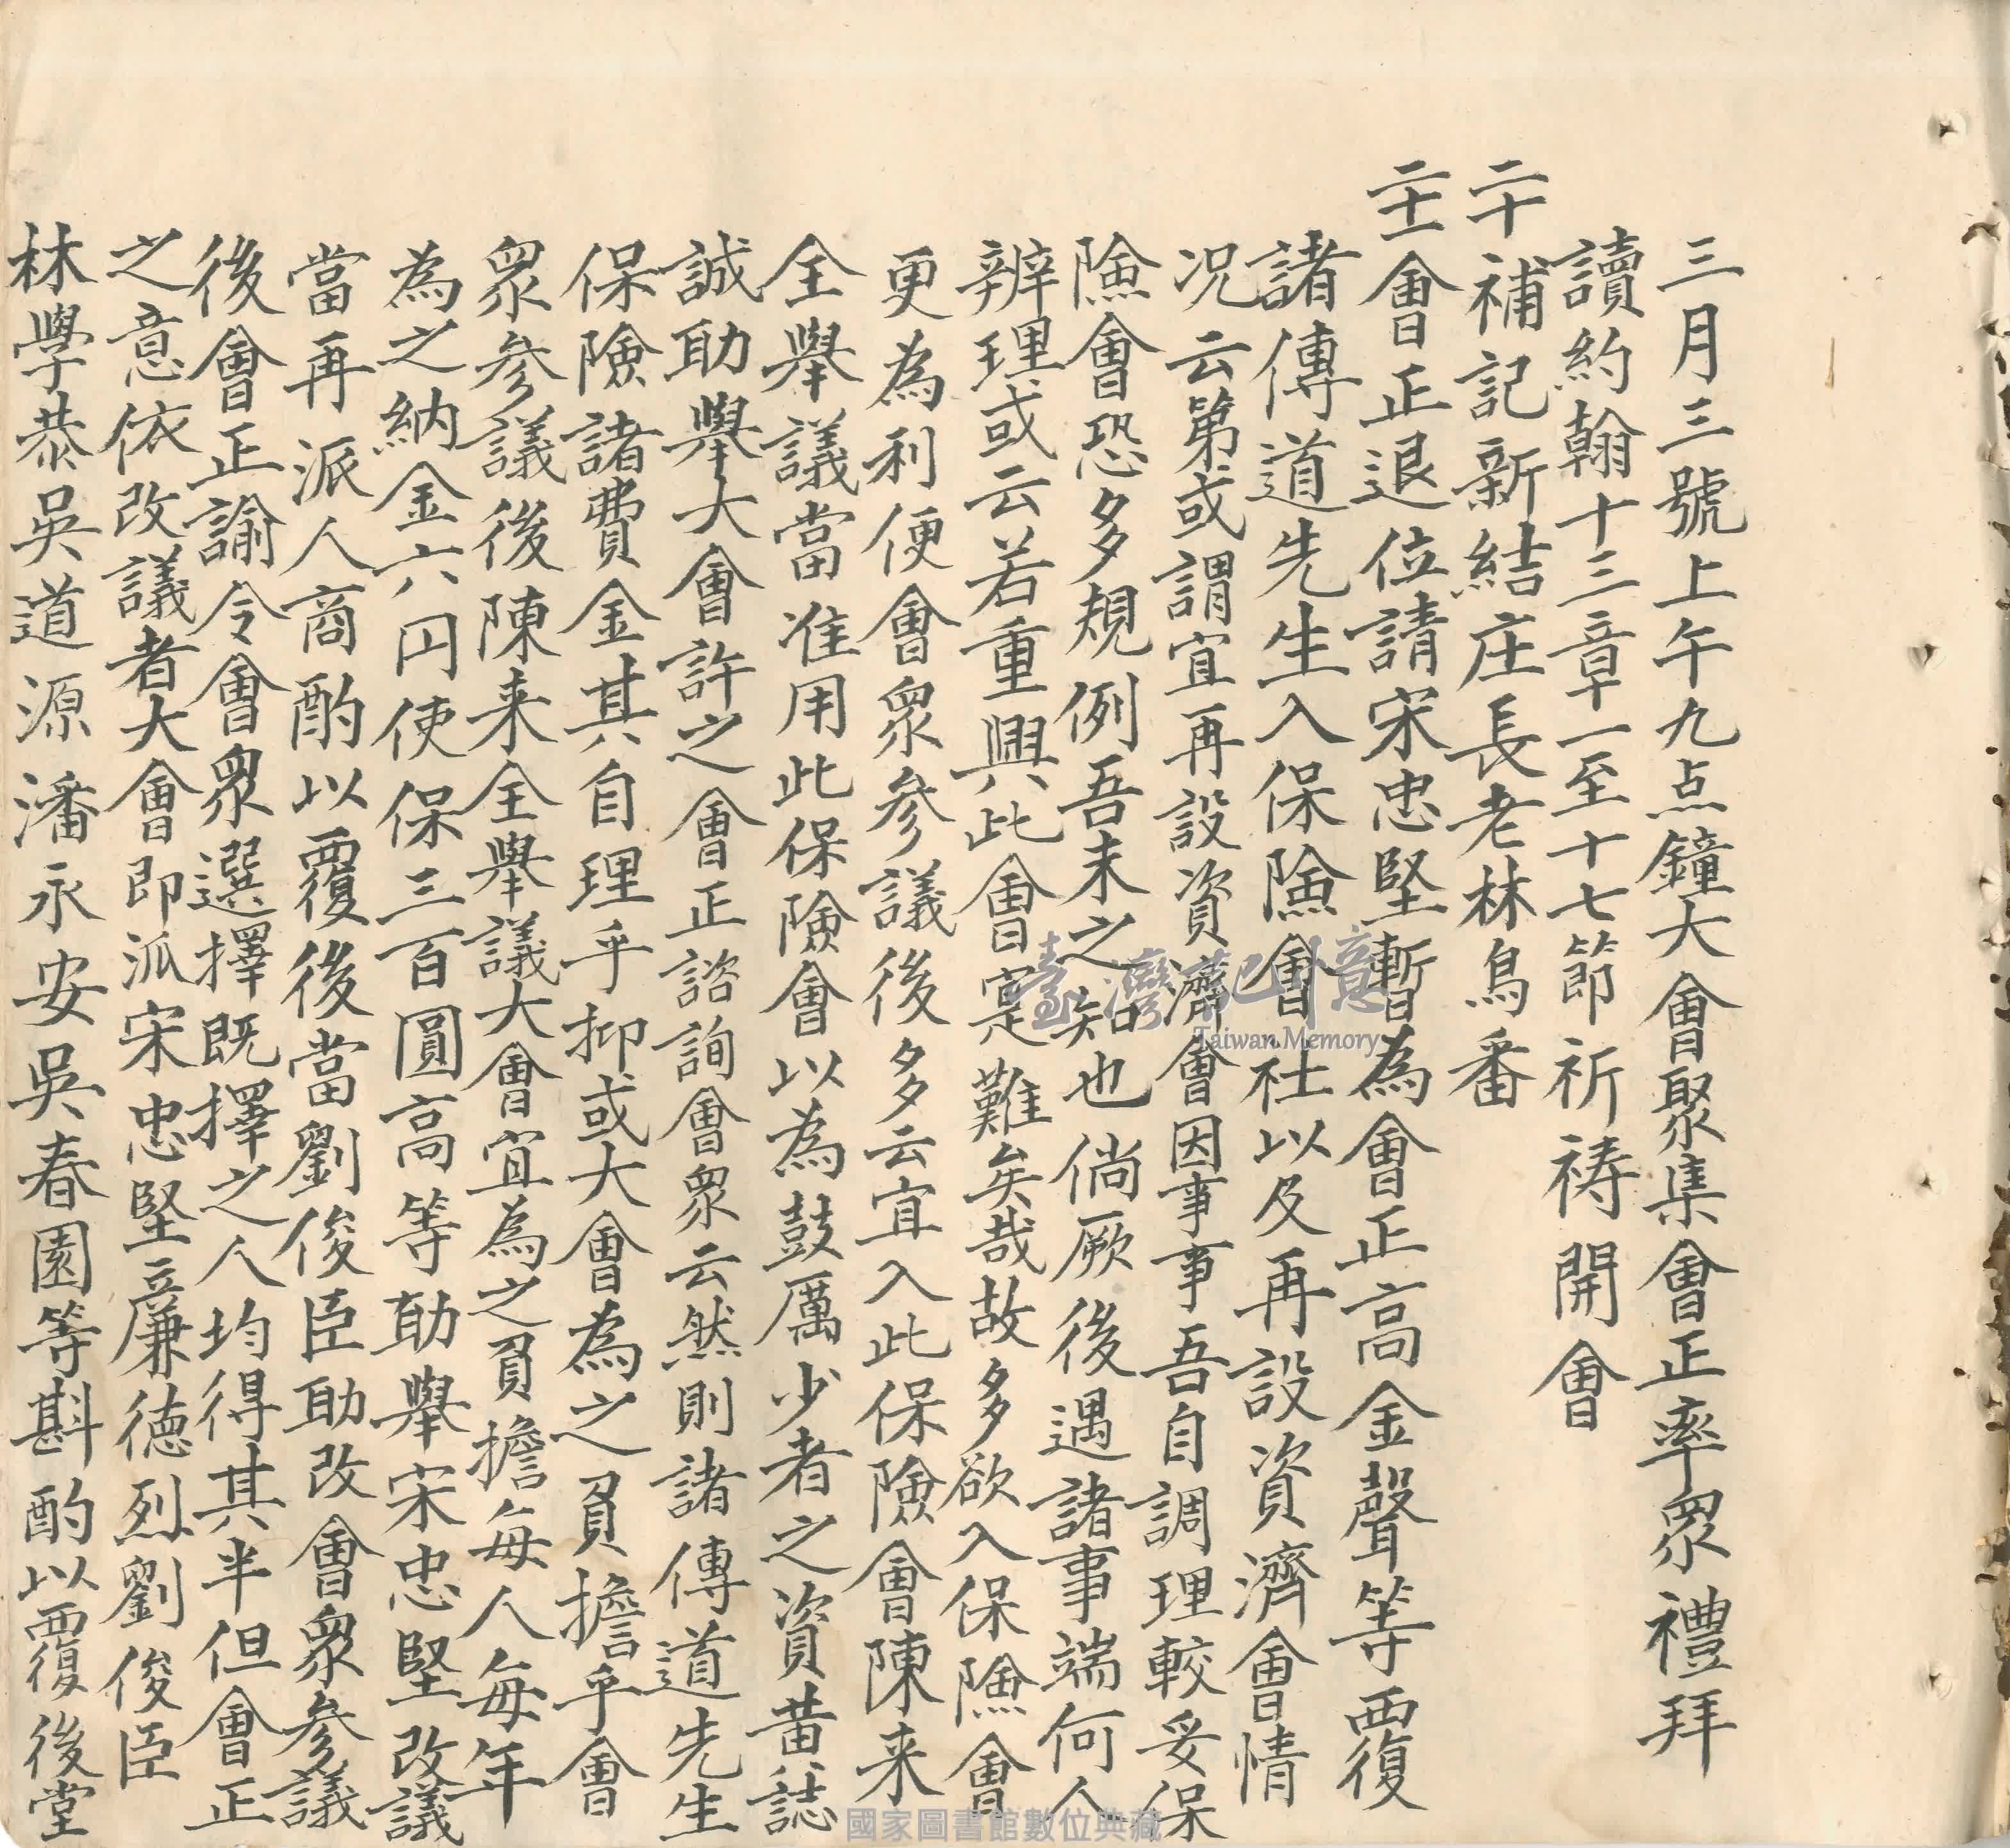 三月三號上午九点鐘大會聚集會正率眾禮拜
讀約翰十三章一至十七節祈祷開會
二十 補記新結庄長老林鳥番
二十一 會正退位請宋忠堅暫為會正高金聲等覆
諸傳道先生入保險會社以及再設資濟會情
况云第或謂宜再設資濟會因事事吾自調理較妥保
險會恐多規例吾未之知也倘厥後遇諸事端何人
辦理或云若重興此會寔難矣哉故多欲入保險會
更為利便會眾參議後多云宜入此保險會陳来
全舉議當准用此保險會以為鼓厲少者之資黄誌
誠助舉大會許之會正諮詢會眾云然則諸傳道先生
保險諸費金其自理乎抑或大會為之負擔乎會
眾參議後陳来全舉議大會宜為之負擔每人每年
為之納金六円使保三百圓高等助舉宋忠堅改議
當再派人商酌以覆後當劉俊臣助改會眾參議
後會正諭令會眾選擇既擇之人均得其半但會正
之意依改議者大會即派宋忠堅廉德烈劉俊臣
林學恭吳道源潘永安吳春園等斟酌以覆後堂
臺灣記憶
Taiwan Memory
國家圖書館數位典藏